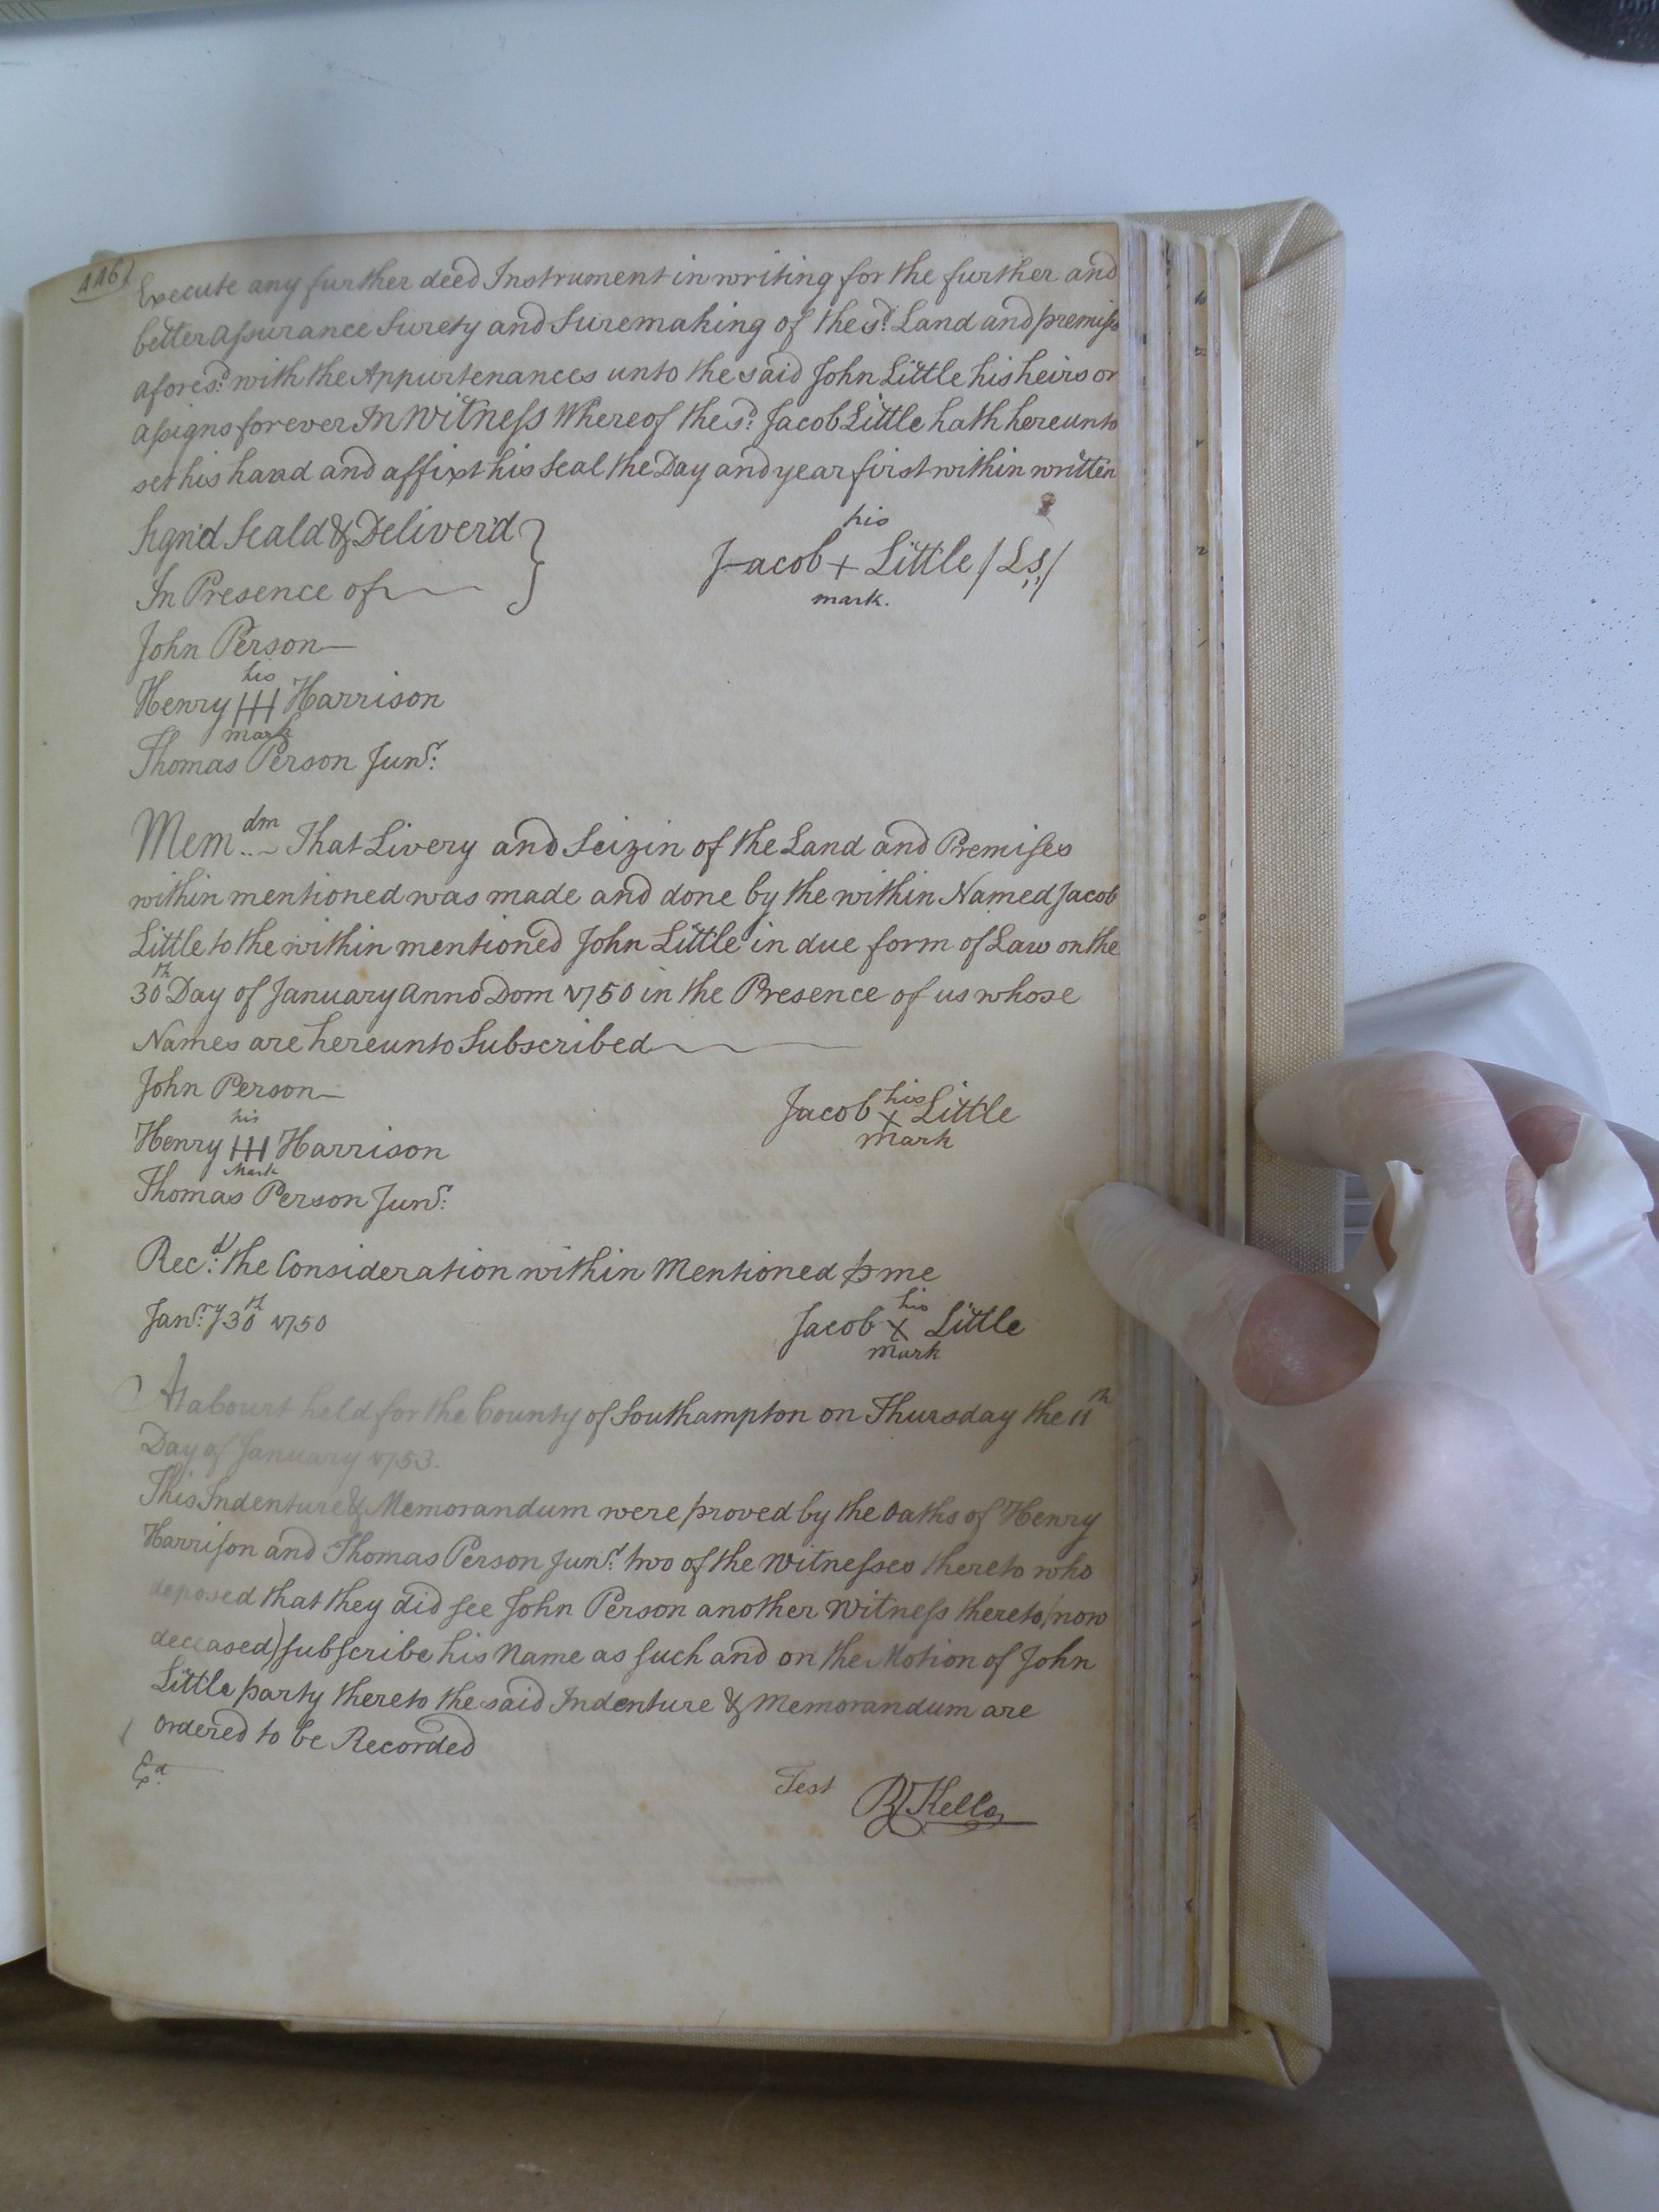 446)
Execute any further deed Instrument in writing for the further and
better assurance Surety and Suremaking of the sd. Land and premiss
aforesd. with the Appurtenances unto the said John Little his heirs or
assigns forever In Witness Whereof the sd. Jacob Little hath hereunto
set his hand and affixt his Seal the Day and year first within written
Sign'd Seald & Deliver'd }
In Presence of
his
Jacob + Little (Ls)
mark.
John Person
his
Henry HH Harrison
mark
Thomas Person Junr.
Memdm That Livery and Seizin of the Land and Premises
within mentioned was made and done by the within Named Jacob
Little to the within mentioned John Little in due form of Law on the
30th Day of January Anno Dom 1750 in the Presence of us whose
Names are hereunto Subscribed
John Person
his
Henry HH Harrison
Mark
Thomas Person Junr.
his
Jacob x Little
mark
Recd. the Consideration within Mentioned p me
Janry 30th 1750
his
Jacob X Little
mark
At a Court held for the County of Southampton on Thursday the 11th
Day of January 1753.
This Indenture & Memorandum were proved by the Oaths of Henry
Harrison and Thomas Person Junr. two of the Witnesses thereto who
deposed that they did see John Person another Witness thereto (now
deceased) subscribe his Name as such and on the Motion of John
Little party thereto the said Indenture & Memorandum are
Ordered to be Recorded
Exd.
Test R Kello